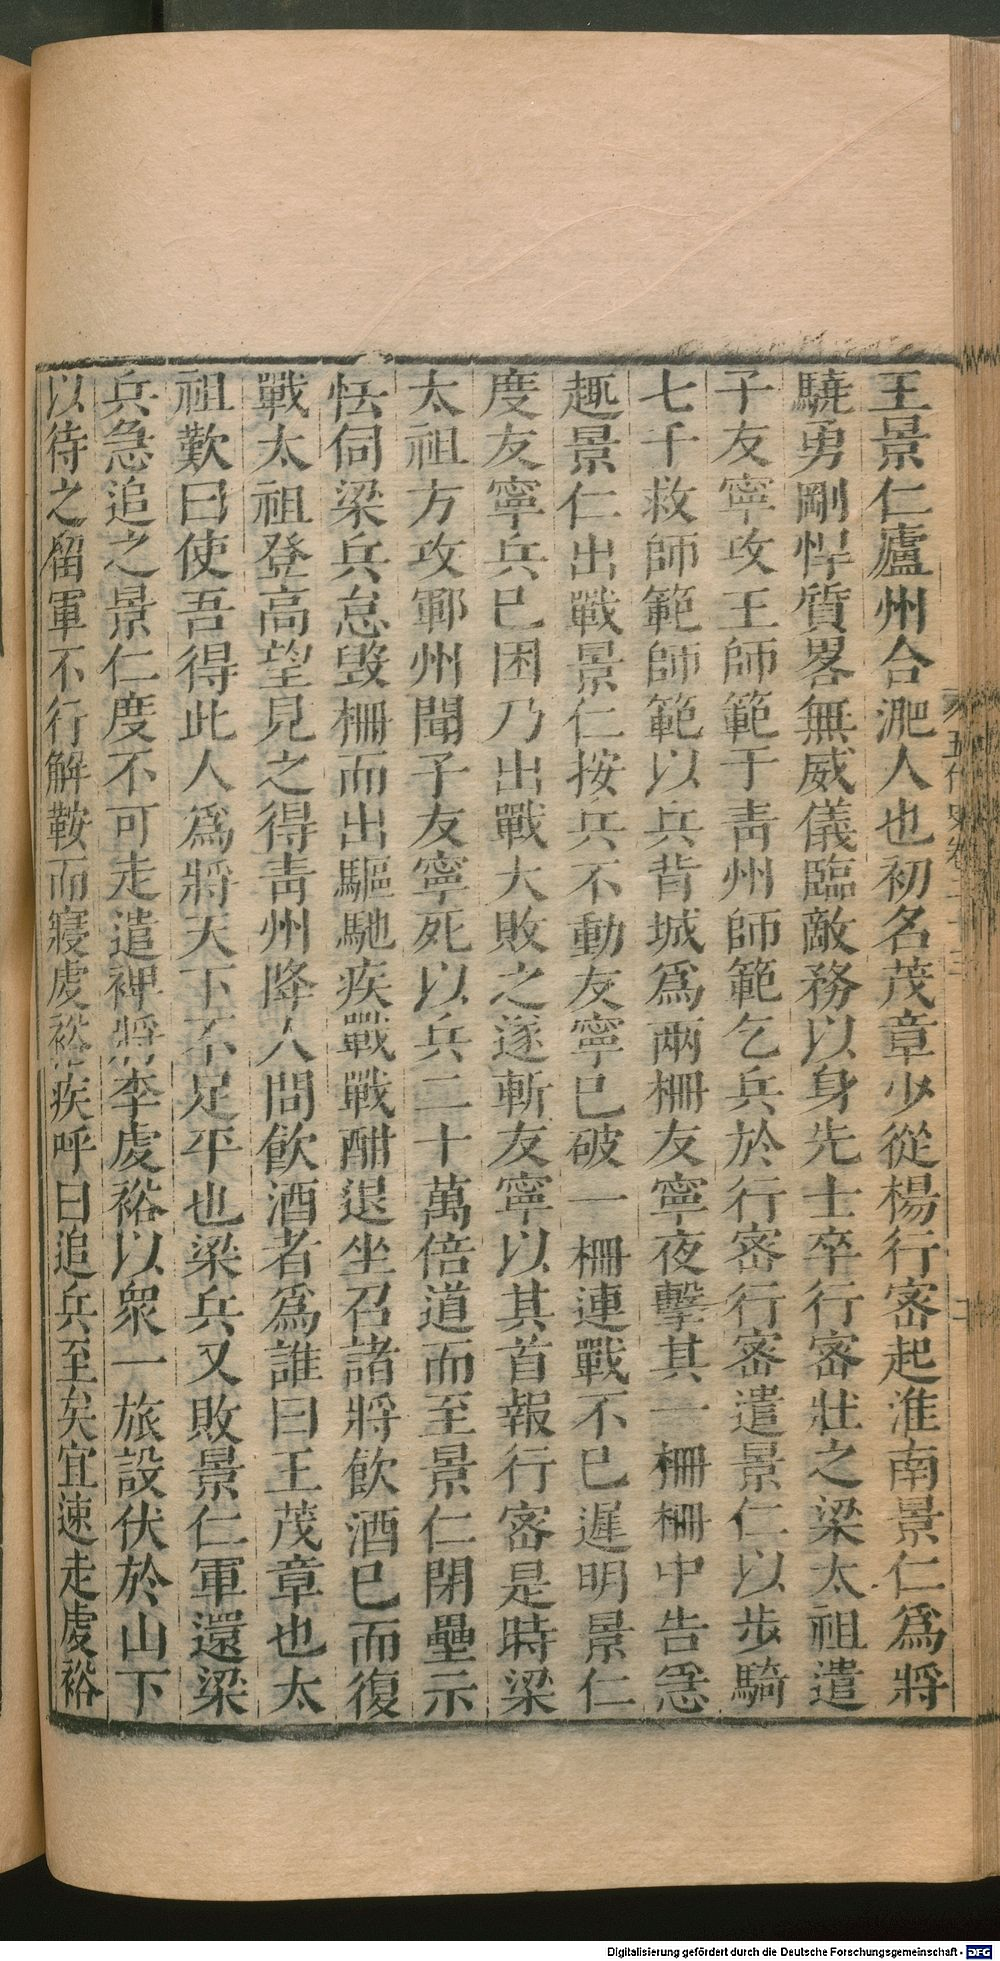 王景仁廬州合淝人也初名茂章少從楊行密起淮南景仁爲將
驍勇剛悍質畧無威儀臨敵務以身先士卒行密壯之梁太祖遣
子友寧攻王師範于靑州師範乞兵於行密行密遣景仁以步騎
七千救師範師範以兵背城爲兩柵友寧夜擊其一柵柵中告急
趣景仁出戰景仁按兵不動友寧已破一柵連戰不已遲明景仁
度友寧兵已困乃出戰大敗之遂斬友寧以其首報行密是時梁
太祖方攻鄆州聞子友寧死以兵二十萬倍道而至景仁閉壘示
怯伺梁兵怠毁柵而出驅馳疾戰戰酣退坐召諸將飮酒已而復
戰太祖登高望見之得靑州降人問飮酒者爲誰曰王茂章也太
祖歎曰使吾得此人爲將天下不足平也梁兵又敗景仁軍還梁
兵急追之景仁度不可走遣裨將李虔裕以衆一旅設伏於山下
以待之留軍不行解鞍而寢虔裕疾呼曰追兵至矣宜速走虔裕
五代史卷二十三
Digitalisierung gefördert durch die Deutsche Forschungsgemeinschaft - DFG